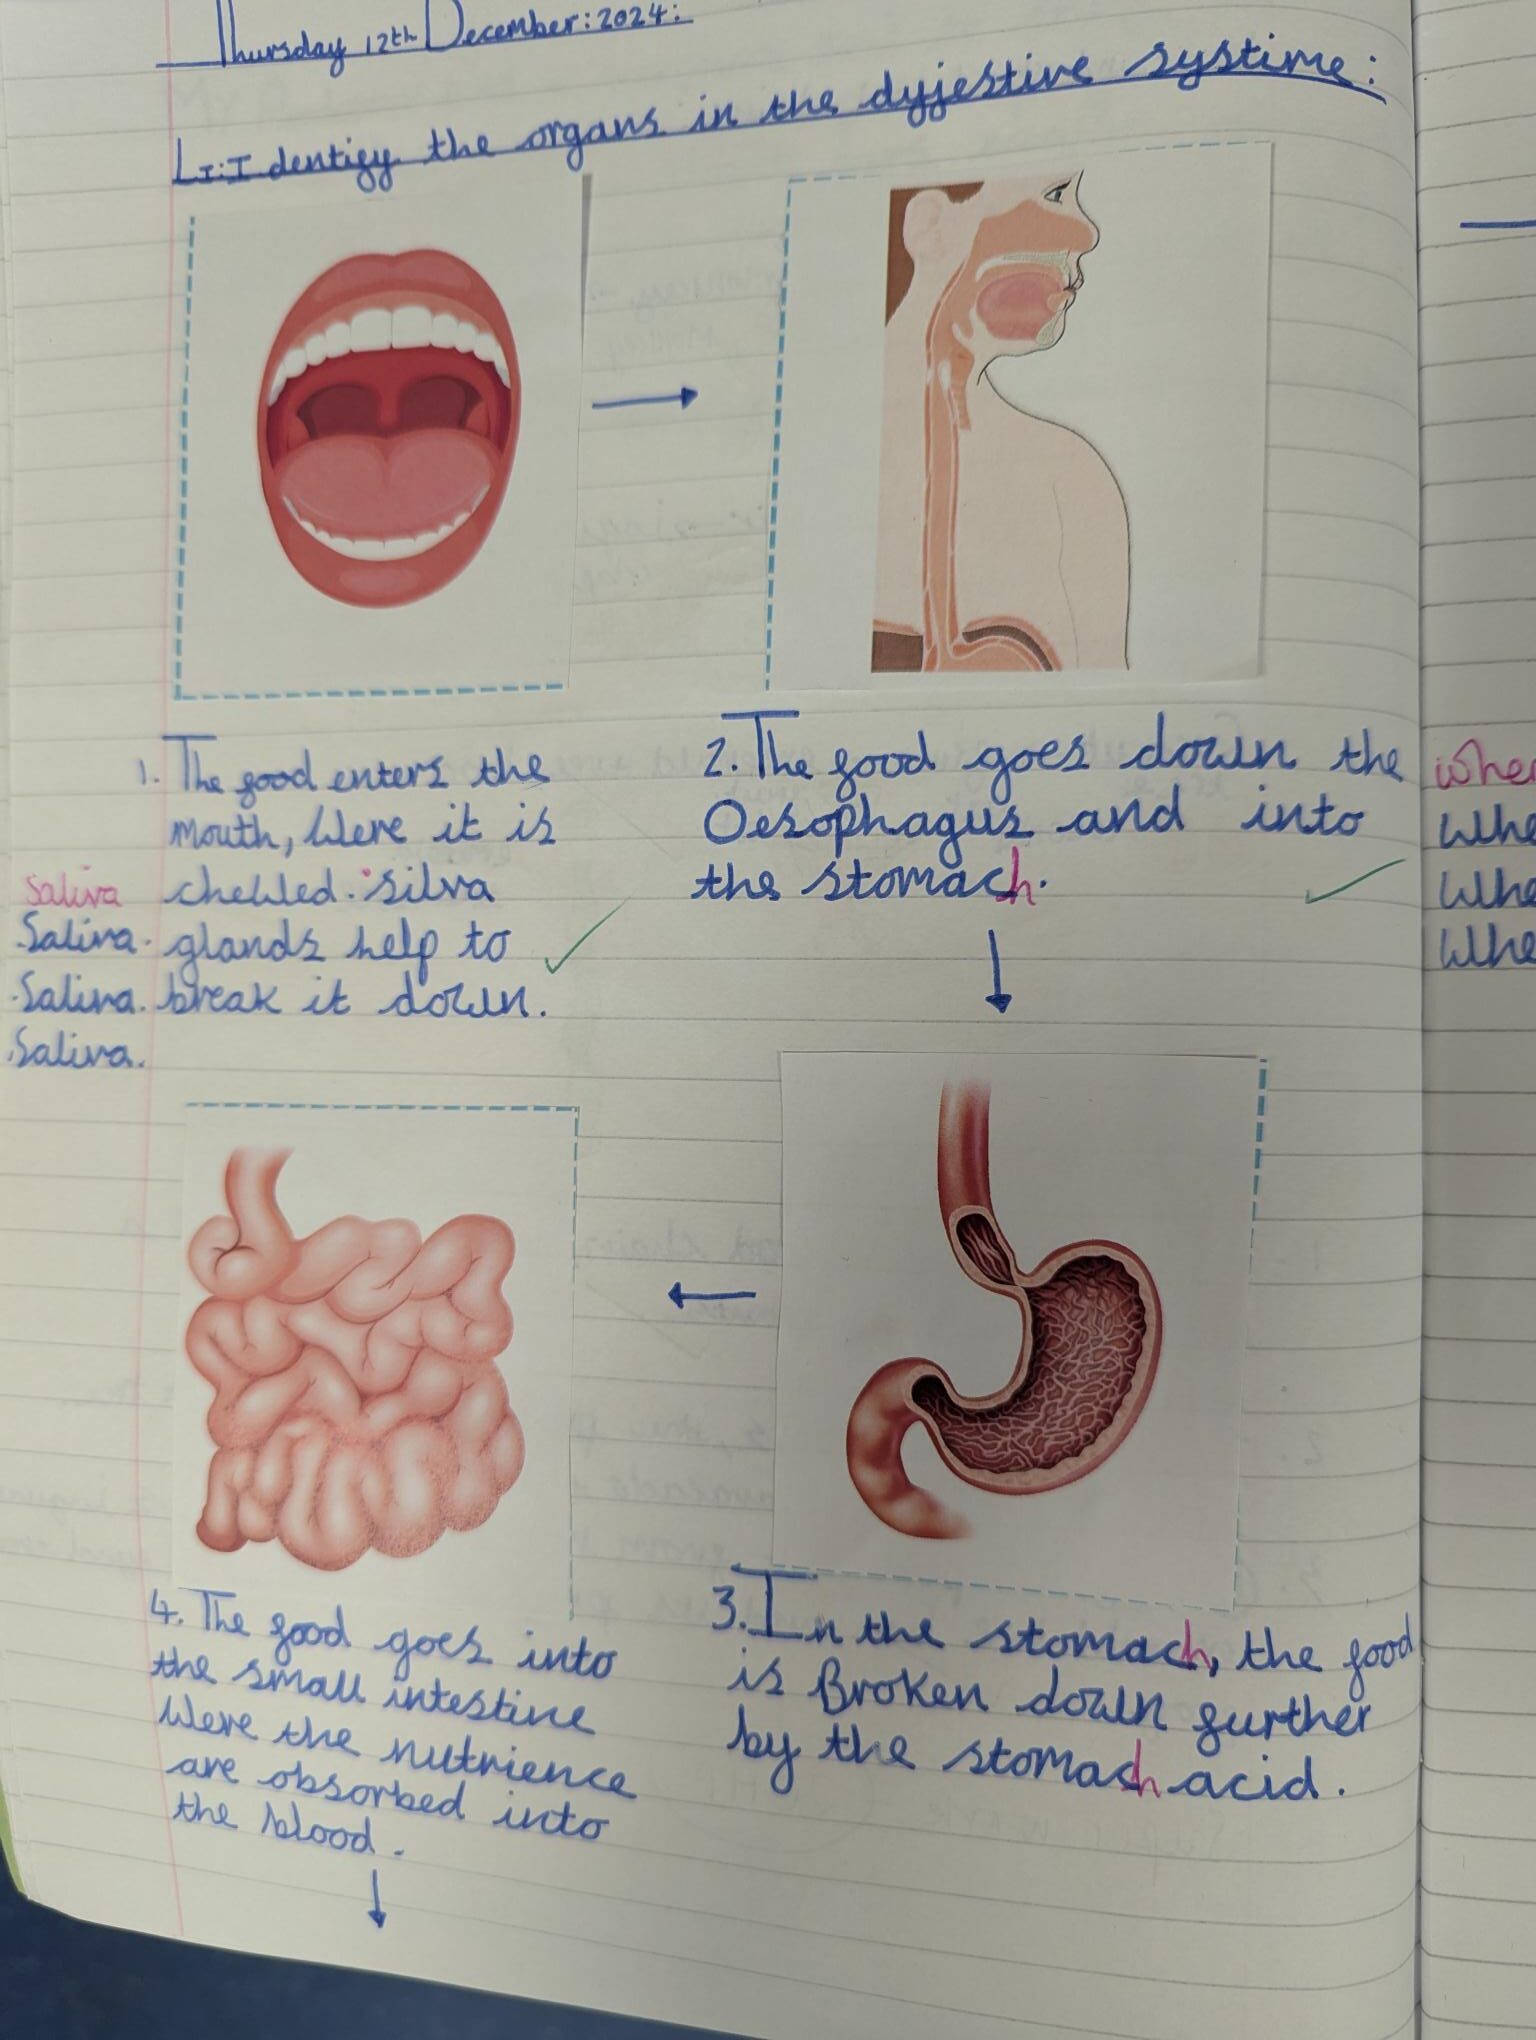 Thursday 12th December: 2024:
LI: Identify the organs in the dyjestive systime:
1. The food enters the
mouth, Were it is
chewed. silva
glands help to
break it down.
saliva
Saliva.
Saliva.
Saliva.
2. The food goes down the
Oesophagus and into
the stomach.
3. In the stomach, the food
is Broken down further
by the stomach acid.
4. The food goes into
the small intestine
Were the nutrience
are obsorbed into
the blood.